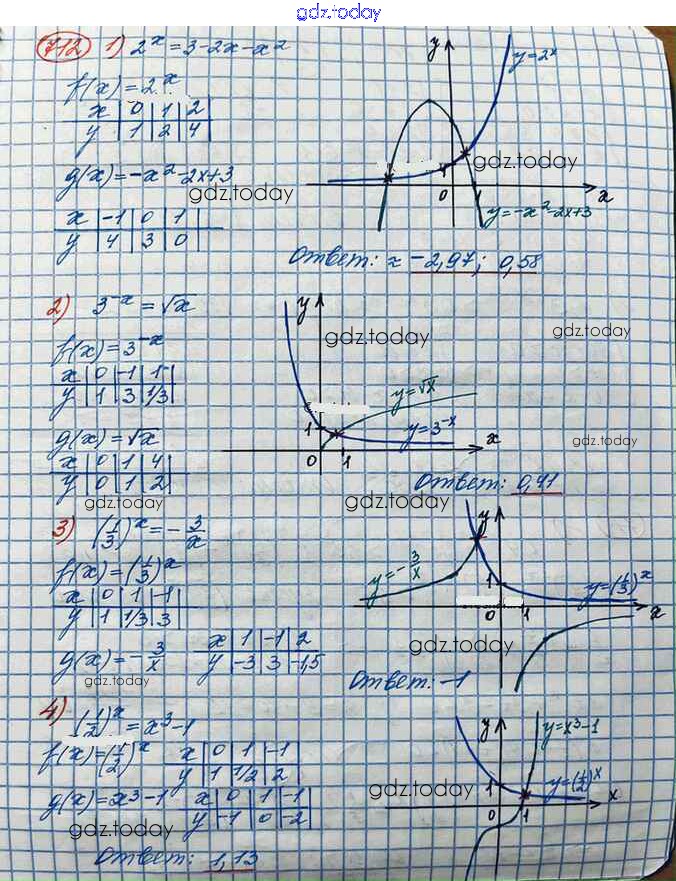 gdz.today
712 1) 2^x = 3-2x-x^2
f(x)=2^x
x | 0 | 1 | 2
y | 1 | 2 | 4
g(x)=-x^2-2x+3
gdz.today
x | -1 | 0 | 1
y | 4 | 3 | 0
y
y=2^x
gdz.today
1
0 1 x
y=-x^2-2x+3
Ответ: ≈ -2,97; 0,58
2) 3^-x = √x
f(x)=3^-x
x | 0 | -1 | 1
y | 1 | 3 | 1/3
g(x)=√x
x | 0 | 1 | 4
y | 0 | 1 | 2
y
gdz.today
gdz.today
y=√x
1
y=3^-x
x
0 1
gdz.today
Ответ: 0,41
gdz.today
3) (1/3)^x = -3/x
f(x)=(1/3)^x
x | 0 | 1 | -1
y | 1 | 1/3 | 3
g(x)=-3/x
x | 1 | -1 | 2
y | -3 | 3 | -1,5
gdz.today
y
y=-3/x
1
y=(1/3)^x
0 1 x
gdz.today
Ответ: -1
4) (1/2)^x = x^3-1
f(x)=(1/2)^x
x | 0 | 1 | -1
y | 1 | 1/2 | 2
g(x)=x^3-1
x | 0 | 1 | -1
y | -1 | 0 | -2
gdz.today
y
y=x^3-1
1
y=(1/2)^x
gdz.today
x
0 1
Ответ: 1,13